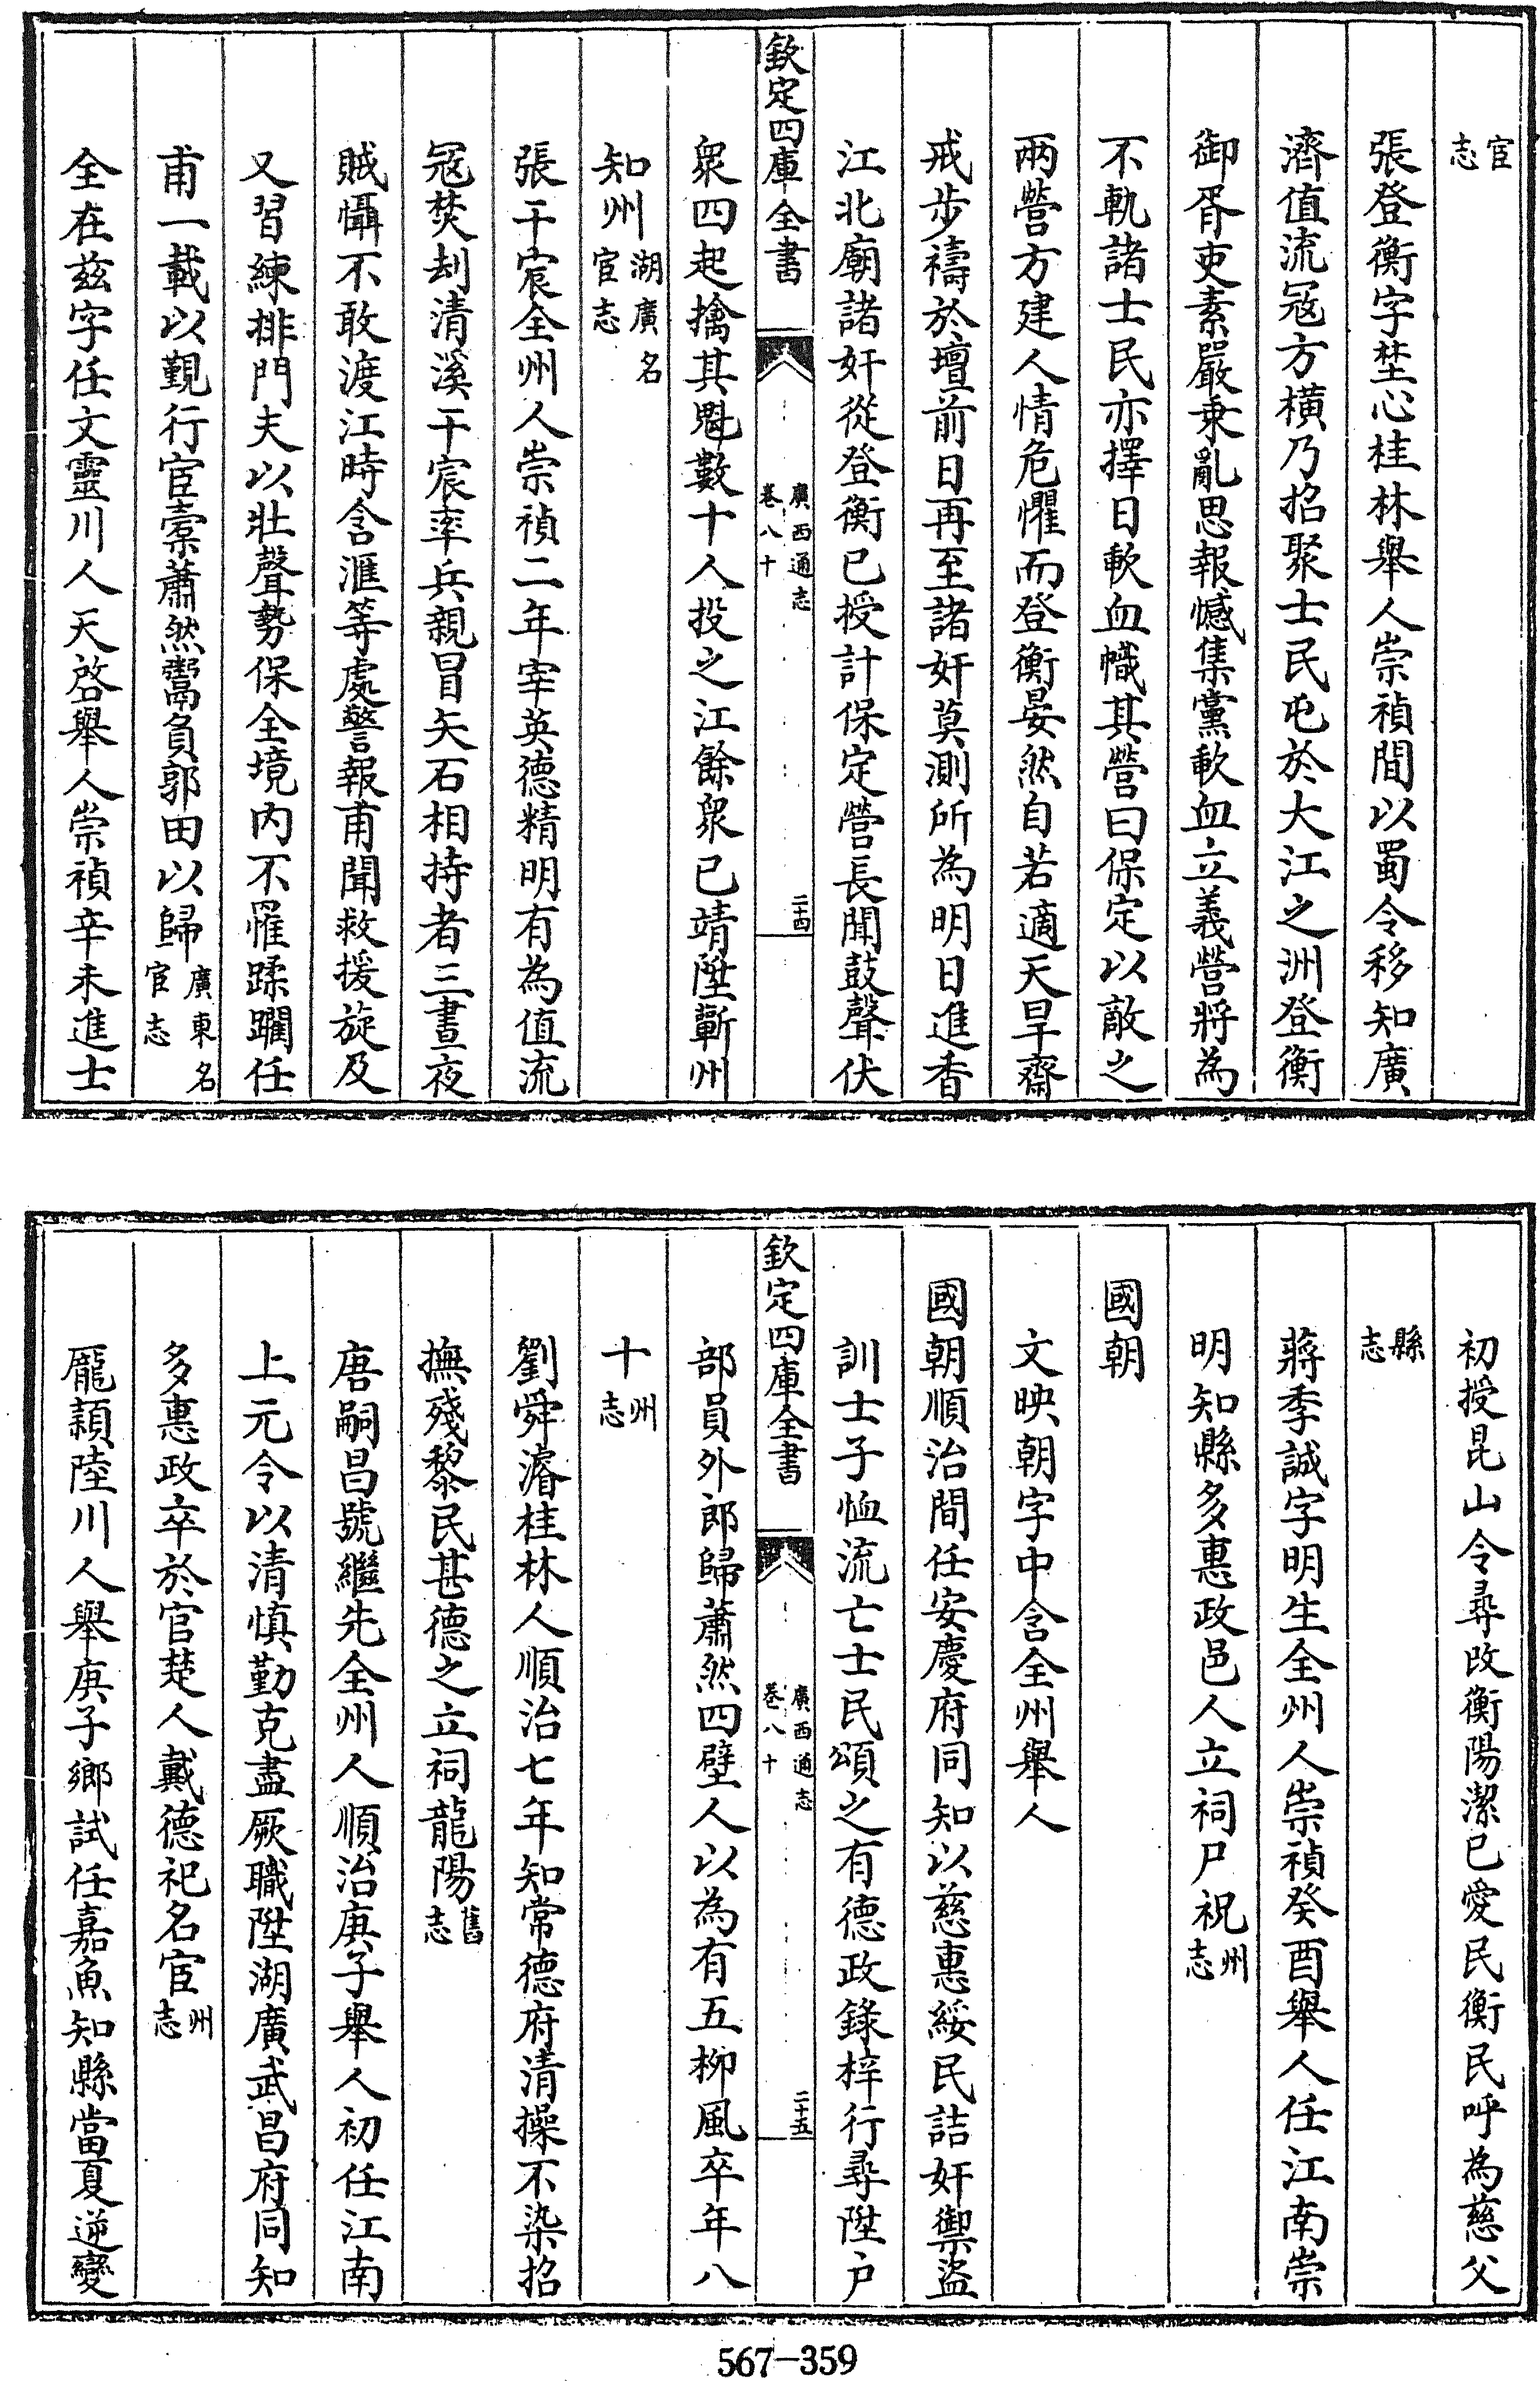 宦志
張登衡字埜心桂林舉人崇禎間以蜀令移知廣
濟值流冦方橫乃招聚士民屯於大江之洲登衡
御胥吏素嚴乗亂思報憾集黨軟血立義營將為
不軌諸士民亦擇日軟血幟其營曰保定以敵之
兩營方建人情危懼而登衡晏然自若適天旱齋
戒步禱於壇前日再至諸奸莫測所為明日進香
江北廟諸奸從登衡已授計保定營長聞鼓聲伏
欽定四庫全書
廣西通志
卷八十
二十四
衆四起擒其魁數十人投之江餘衆已靖陞蘄州
知州湖廣名宦志
張干宸全州人崇禎二年宰英德精明有為值流
冦焚刦清溪干宸率兵親冒矢石相持者三晝夜
賊懾不敢渡江時含滙等處警報甫聞救援旋及
又習練排門夫以壯聲勢保全境内不罹蹂躙任
甫一載以覲行宦橐蕭然鬻負郭田以歸廣東名宦志
全在兹字任文靈川人天啓舉人崇禎辛未進士
初授昆山令尋改衡陽潔已愛民衡民呼為慈父
縣志
蔣季誠字明生全州人崇禎癸酉舉人任江南崇
明知縣多惠政邑人立祠尸祝州志
國朝
文映朝字中含全州舉人
國朝順治間任安慶府同知以慈惠綏民詰奸禦盜
訓士子恤流亡士民頌之有德政錄梓行尋陞户
欽定四庫全書
廣西通志
卷八十
二十五
部員外郎歸蕭然四壁人以為有五栁風卒年八
十州志
劉舜濬桂林人順治七年知常德府清操不染招
撫殘黎民甚德之立祠龍陽舊志
唐嗣昌號繼先全州人順治庚子舉人初任江南
上元令以清慎勤克盡厥職陞湖廣武昌府同知
多惠政卒於官楚人戴德祀名宦州志
龎穎陸川人舉庚子鄉試任嘉魚知縣當夏逆變
567—359